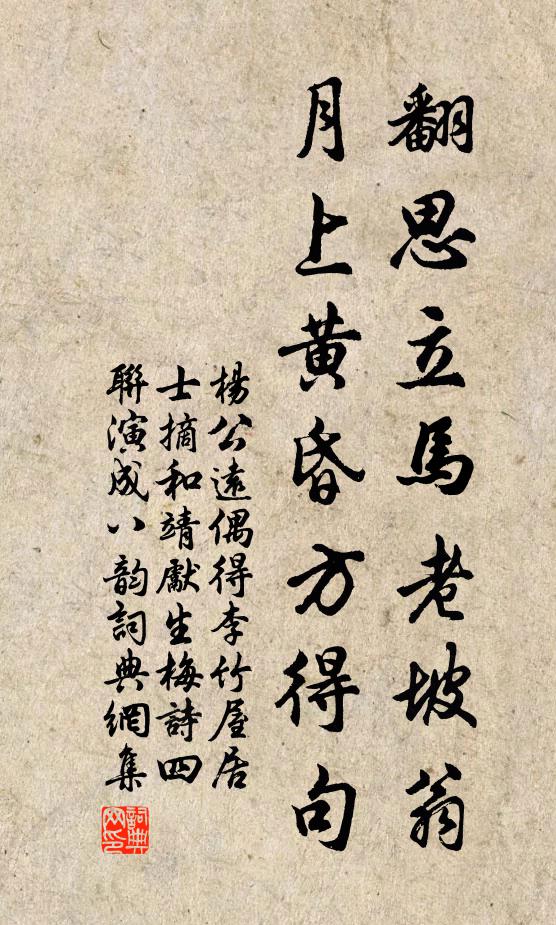 翻思立馬老坡翁
月上黃昏方得句
楊公遠偶得李竹屋居
士摘和靖獻生梅詩四
聯演成八韵詞典網集
詞典
网印